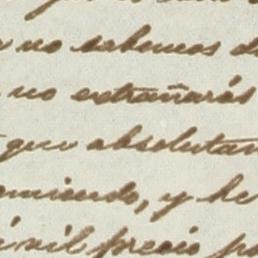 no sabemos
no extrañarás
que absolutam
omiendo, y he
vil precio p